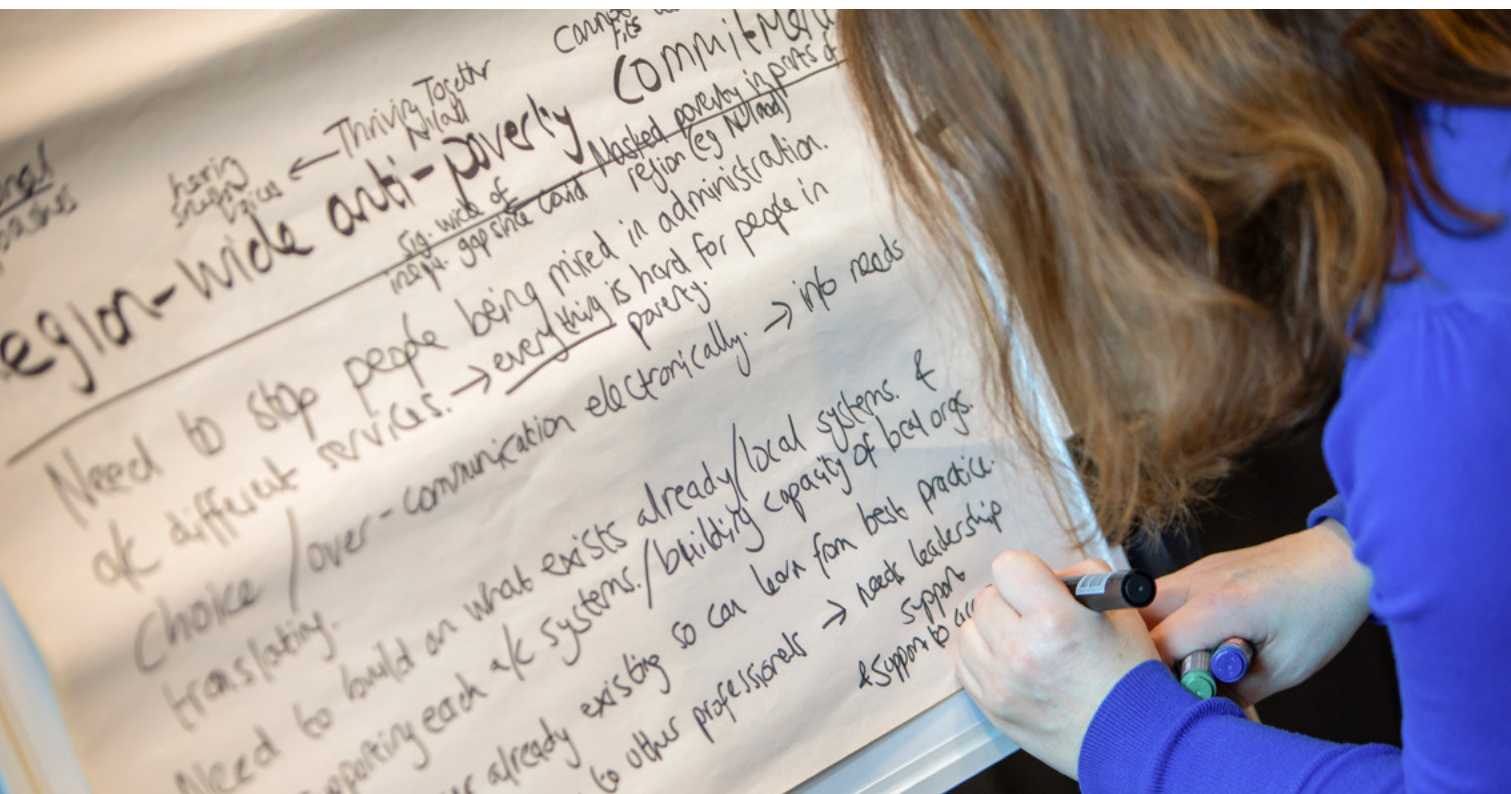 Thriving Together
egion-wide anti-poverty Commitment
sig. wide of
inequ. gap since covid
Masked poverty in parts of
region (eg N'land)
Need to stop people being mired in administration.
a/c different services. → everything is hard for people in
poverty.
Choice / over-communication electronically. → info needs
translating.
Need to build on what exists already/local systems. &
pporting each a/c systems./building capacity of local orgs.
already existing so can learn from best practice.
to other professionals → needs leadership
support
& support to